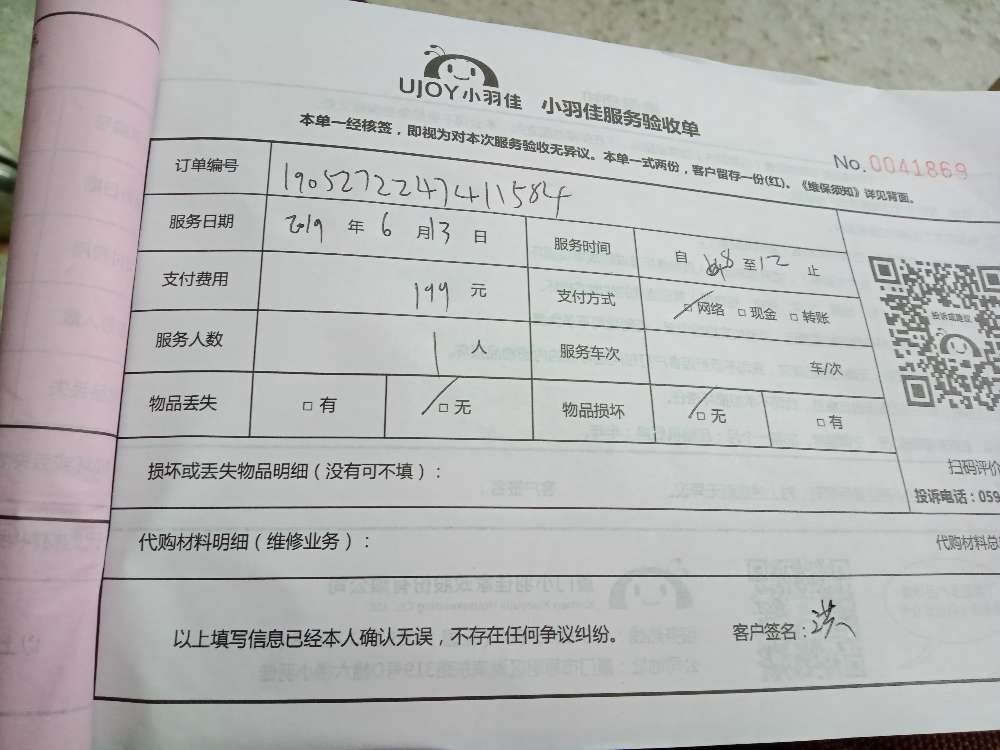 UJOY小羽佳 小羽佳服务验收单
本单一经核签，即视为对本次服务验收无异议。本单一式两份，客户留存一份(红)。《维保须知》详见背面。
No.0041869
订单编号 1905272247411584
服务日期 2019 年 6 月 13 日 服务时间 自 8 至 12 止
支付费用 199 元 支付方式 □网络 □现金 □转账
服务人数 1 人 服务车次 车/次
物品丢失 □有 □无 物品损坏 □无 □有
投诉或建议
扫码评价
投诉电话：059
损坏或丢失物品明细（没有可不填）：
代购材料明细（维修业务）： 代购材料总
以上填写信息已经本人确认无误，不存在任何争议纠纷。 客户签名：洪